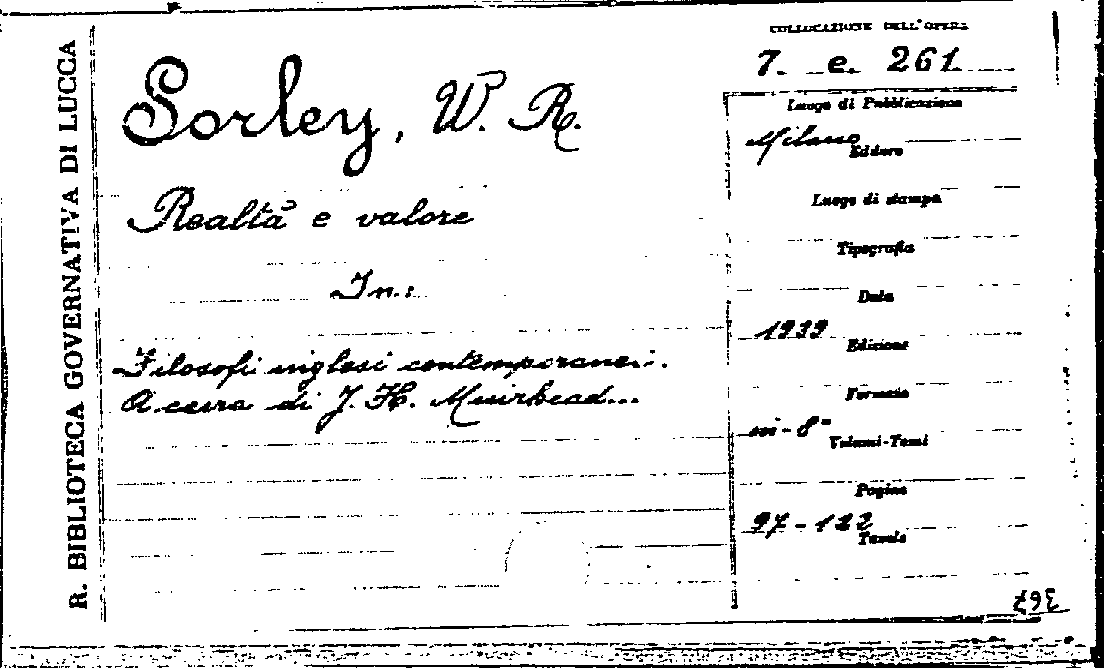 R. BIBLIOTECA GOVERNATIVA DI LUCCA
Sorley, W. R.
Realtà e valore
In:
Filosofi inglesi contemporanei.
A cura di J. H. Muirhead...
COLLOCAZIONE DELL'OPERA
7. e. 261
Luogo di Pubblicazione
Milano
Editore
Luogo di stampa
Tipografia
Data
1939
Edizione
Formato
in-8°
Volumi-Tomi
Pagine
97-122
Tavole
367